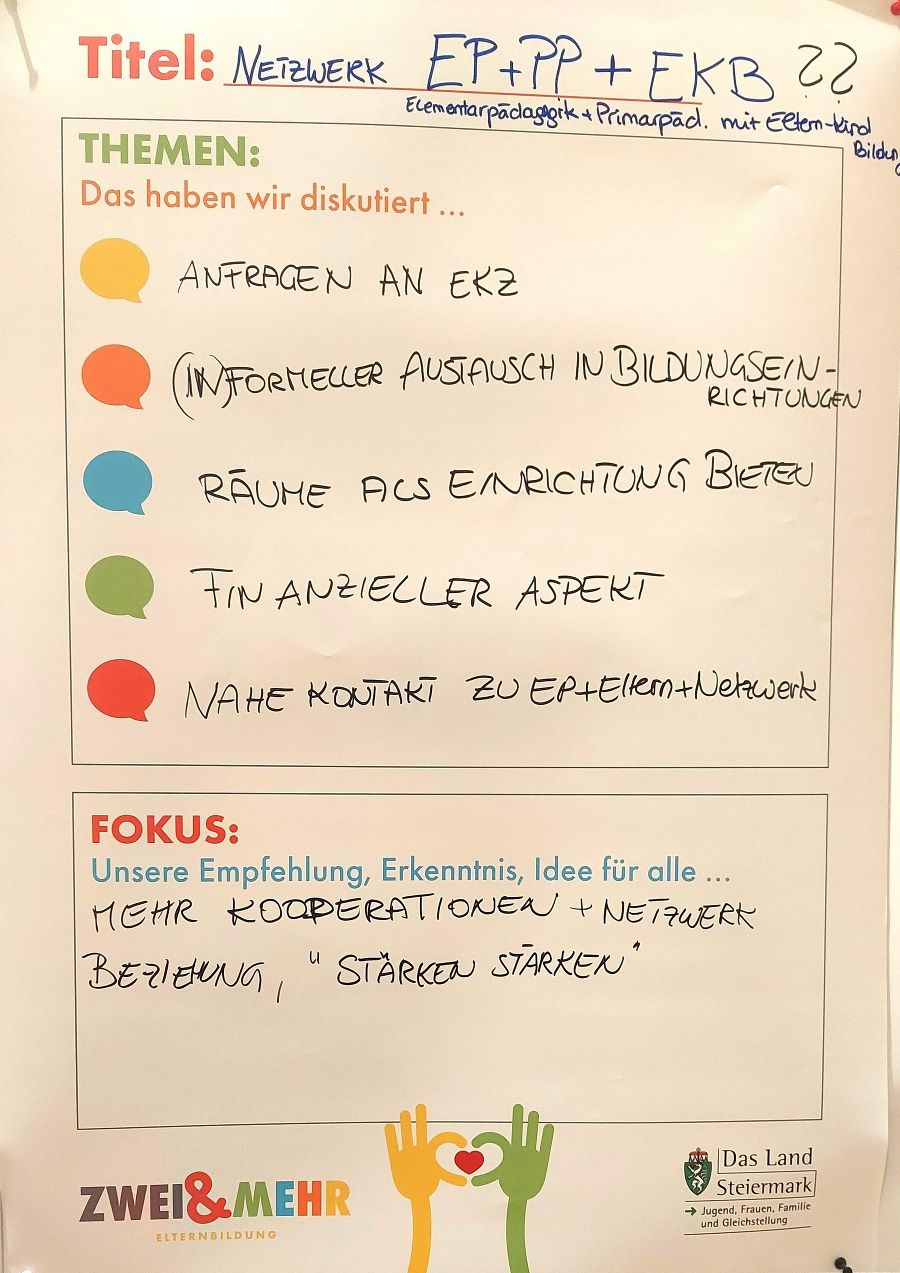 Titel: NETZWERK EP+PP + EKB ??
Elementarpädagogik + Primarpäd. mit Eltern-Kind
Bildung
THEMEN:
Das haben wir diskutiert ...
ANFRAGEN AN EKZ
(IN)FORMELLER AUSTAUSCH IN BILDUNGSEIN-
RICHTUNGEN
RÄUME ALS EINRICHTUNG BIETEN
FINANZIELLER ASPEKT
NAHE KONTAKT ZU EP+Eltern+Netzwerk
FOKUS:
Unsere Empfehlung, Erkenntnis, Idee für alle ...
MEHR KOOPERATIONEN + NETZWERK
BEZIEHUNG, "STÄRKEN STÄRKEN"
ZWEI&MEHR
ELTERNBILDUNG
Das Land
Steiermark
→ Jugend, Frauen, Familie
und Gleichstellung